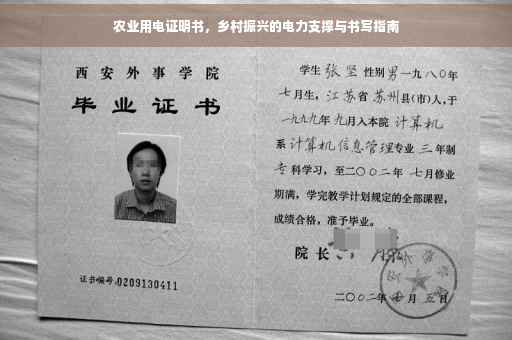 农业用电证明书，乡村振兴的电力支撑与书写指南
西安外事学院
毕业证书
证书编号:0209130411
学生 张坚 性别 男 一九八〇年
七月生，江苏省苏州县(市)人，于
一九九九年九月入本院 计算机
系 计算机信息管理 专业 三 年制
专科学习，至二〇〇二年 七月修业
期满，学完教学计划规定的全部课程，
成绩合格，准予毕业。
院长
二〇〇二年 月五日